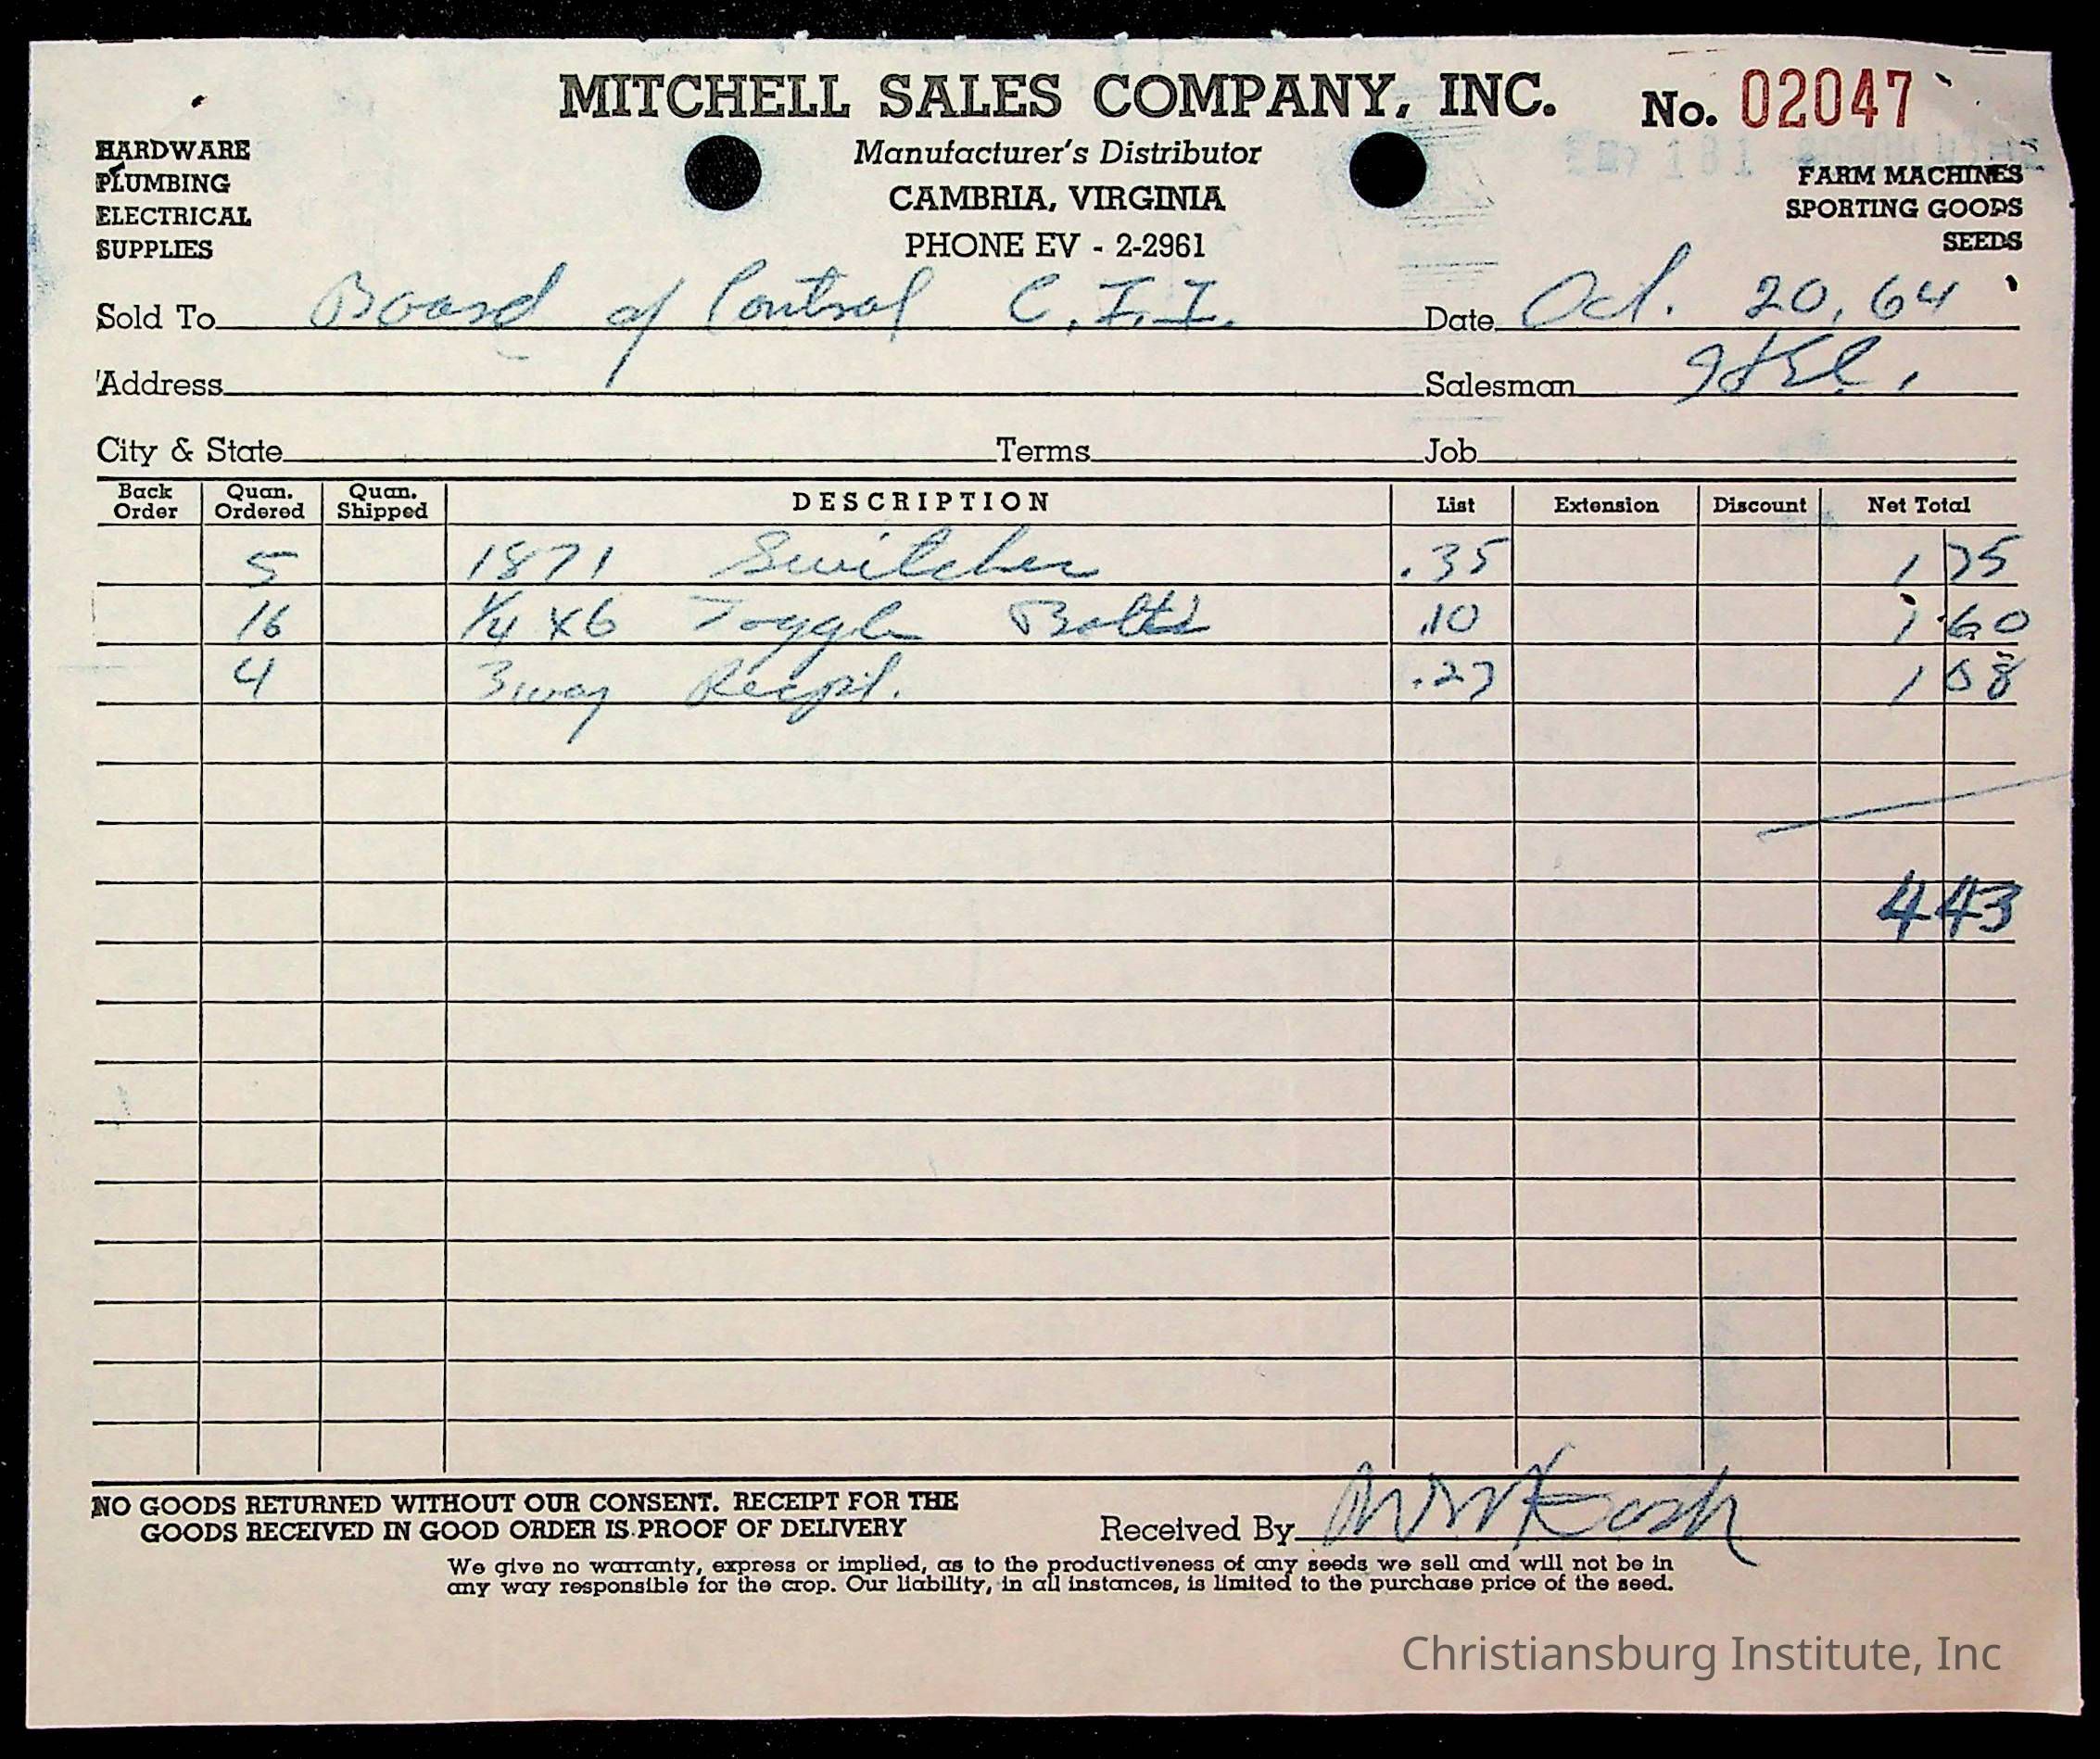 MITCHELL SALES COMPANY, INC.
No. 02047
Manufacturer's Distributor
CAMBRIA, VIRGINIA
PHONE EV - 2-2961
HARDWARE
PLUMBING
ELECTRICAL
SUPPLIES
FARM MACHINES
SPORTING GOODS
SEEDS
Sold To Board of Control C.I.I. Date Oct. 20, 64
Address Salesman
City & State Terms Job
Back Order Quan. Ordered Quan. Shipped DESCRIPTION List Extension Discount Net Total
5 1871 Switches .35 1 75
16 1/4 x 6 Toggle Bolts .10 1 60
4 3 way Recpt. .27 1 08
4 43
NO GOODS RETURNED WITHOUT OUR CONSENT. RECEIPT FOR THE
GOODS RECEIVED IN GOOD ORDER IS PROOF OF DELIVERY
Received By
We give no warranty, express or implied, as to the productiveness of any seeds we sell and will not be in
any way responsible for the crop. Our liability, in all instances, is limited to the purchase price of the seed.
Christiansburg Institute, Inc